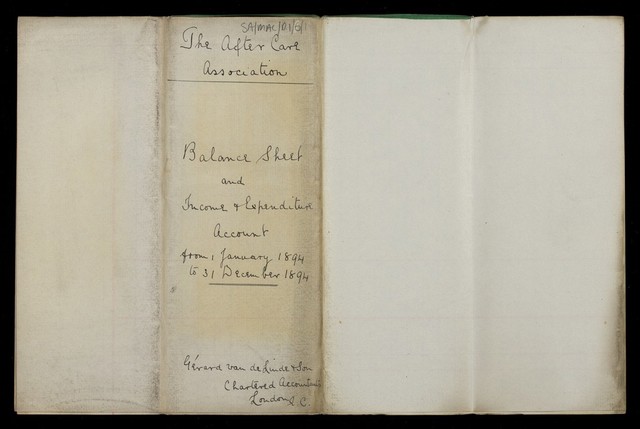 SA/MAC/D1/2/1
The After Care
Association
Balance Sheet
and
Income & Expenditure
Account
from 1 January 1894
to 31 December 1894
Gérard van de Linde & Son
Chartered Accountants
London E.C.